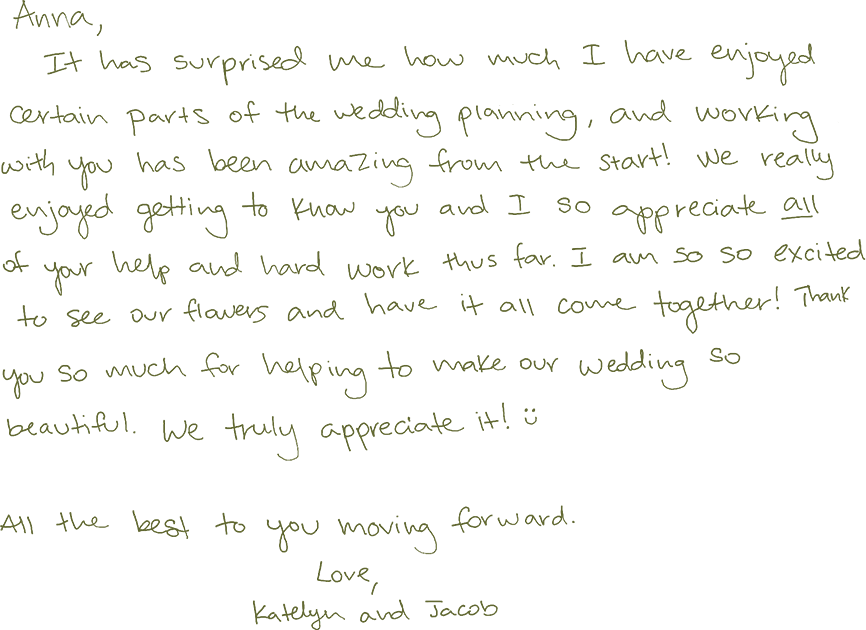 Anna,
It has surprised me how much I have enjoyed
certain parts of the wedding planning, and working
with you has been amazing from the start! We really
enjoyed getting to know you and I so appreciate all
of your help and hard work thus far. I am so so excited
to see our flowers and have it all come together! Thank
you so much for helping to make our wedding so
beautiful. We truly appreciate it! :)
All the best to you moving forward.
Love,
Katelyn and Jacob